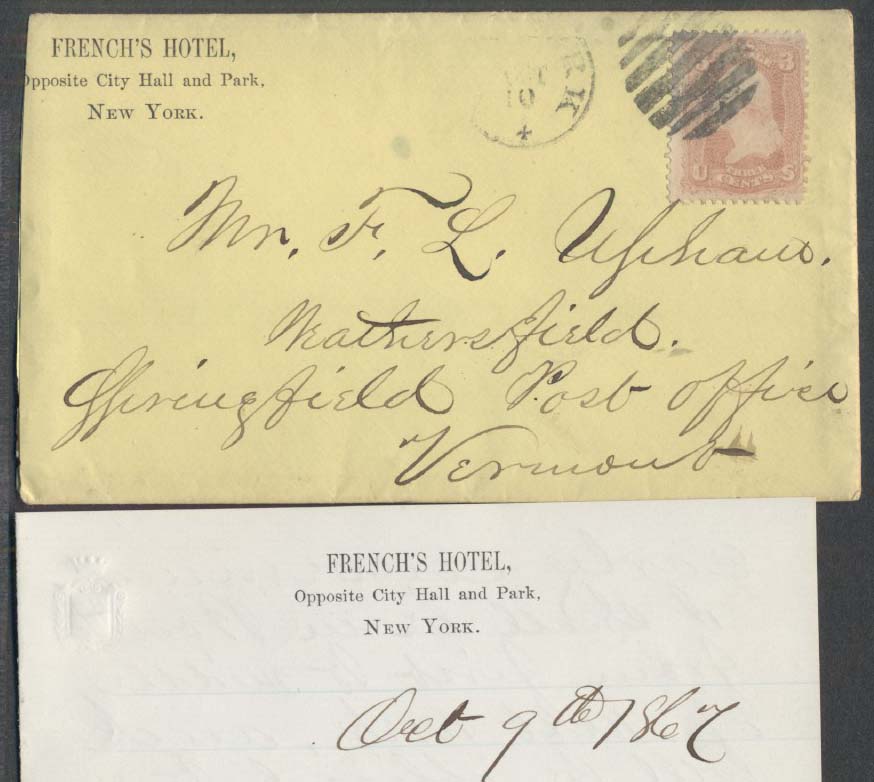 FRENCH'S HOTEL,
Opposite City Hall and Park,
NEW YORK.
RK
OCT
10
3
U THREE CENTS S
Mr. F. L. Upham.
Weathersfield.
Springfield Post office
Vermont
FRENCH'S HOTEL,
Opposite City Hall and Park,
NEW YORK.
Oct 9th 1867